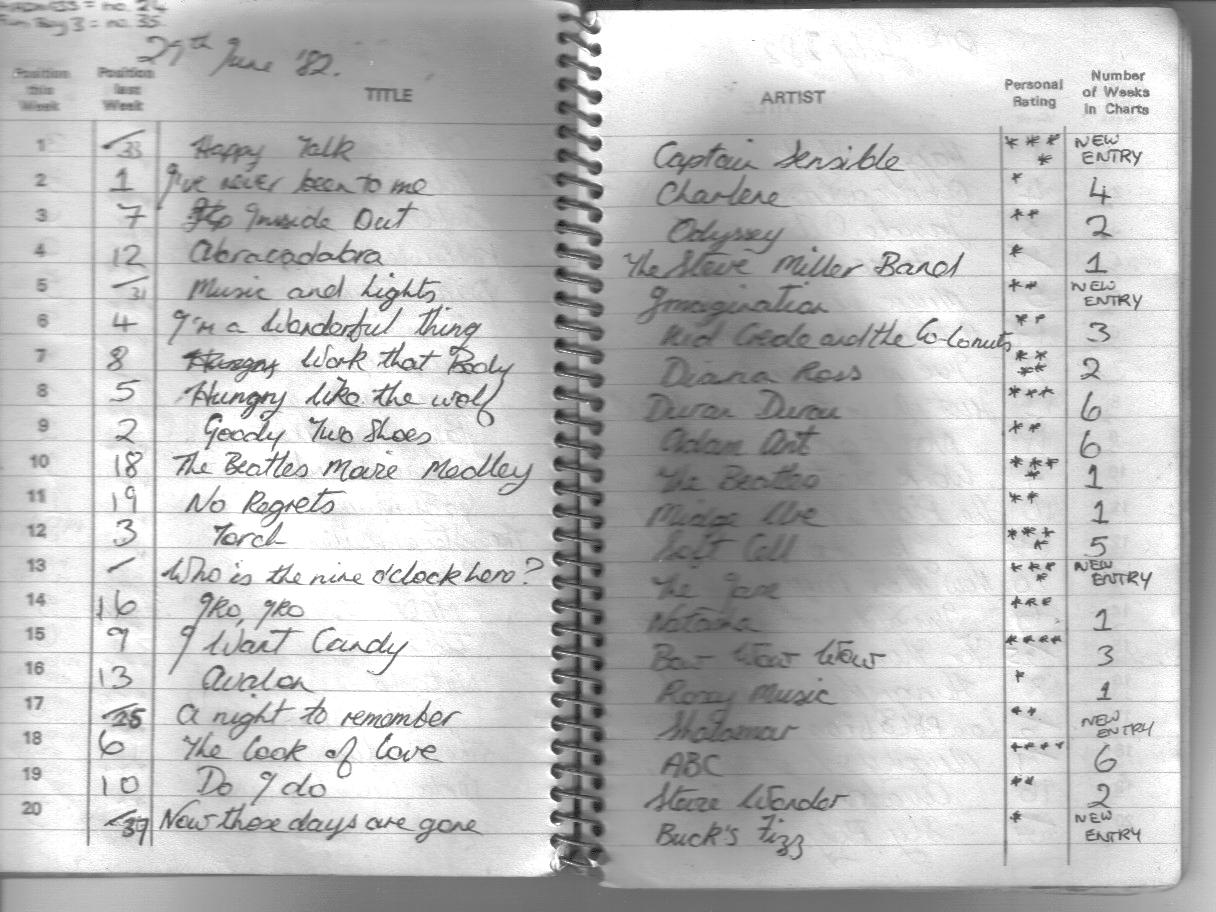 = no. 24
3 = no. 35
29th June '82.
Position this Week Position last Week TITLE ARTIST Personal Rating Number of Weeks in Charts
1 33 Happy Talk Captain Sensible **** NEW ENTRY
2 1 I've never been to me Charlene * 4
3 7 Inside Out Odyssey ** 2
4 12 Abracadabra The Steve Miller Band * 1
5 31 Music and Lights Imagination ** NEW ENTRY
6 4 I'm a Wonderful thing Kid Creole and the Co-Conuts ** 3
7 8 Work that Body Diana Ross **** 2
8 5 Hungry like the wolf Duran Duran *** 6
9 2 Goody Two Shoes Adam Ant ** 6
10 18 The Beatles Movie Medley The Beatles **** 1
11 19 No Regrets Midge Ure ** 1
12 3 Torch Soft Cell **** 5
13 – Who is the nine o'clock hero? The **** NEW ENTRY
14 16 Iko, Iko Natasha *** 1
15 9 I Want Candy Bow Wow Wow **** 3
16 13 Avalon Roxy Music * 1
17 25 A night to remember Shalamar ** NEW ENTRY
18 6 The Look of Love ABC **** 6
19 10 Do I do Stevie Wonder ** 2
20 37 Now those days are gone Buck's Fizz * NEW ENTRY